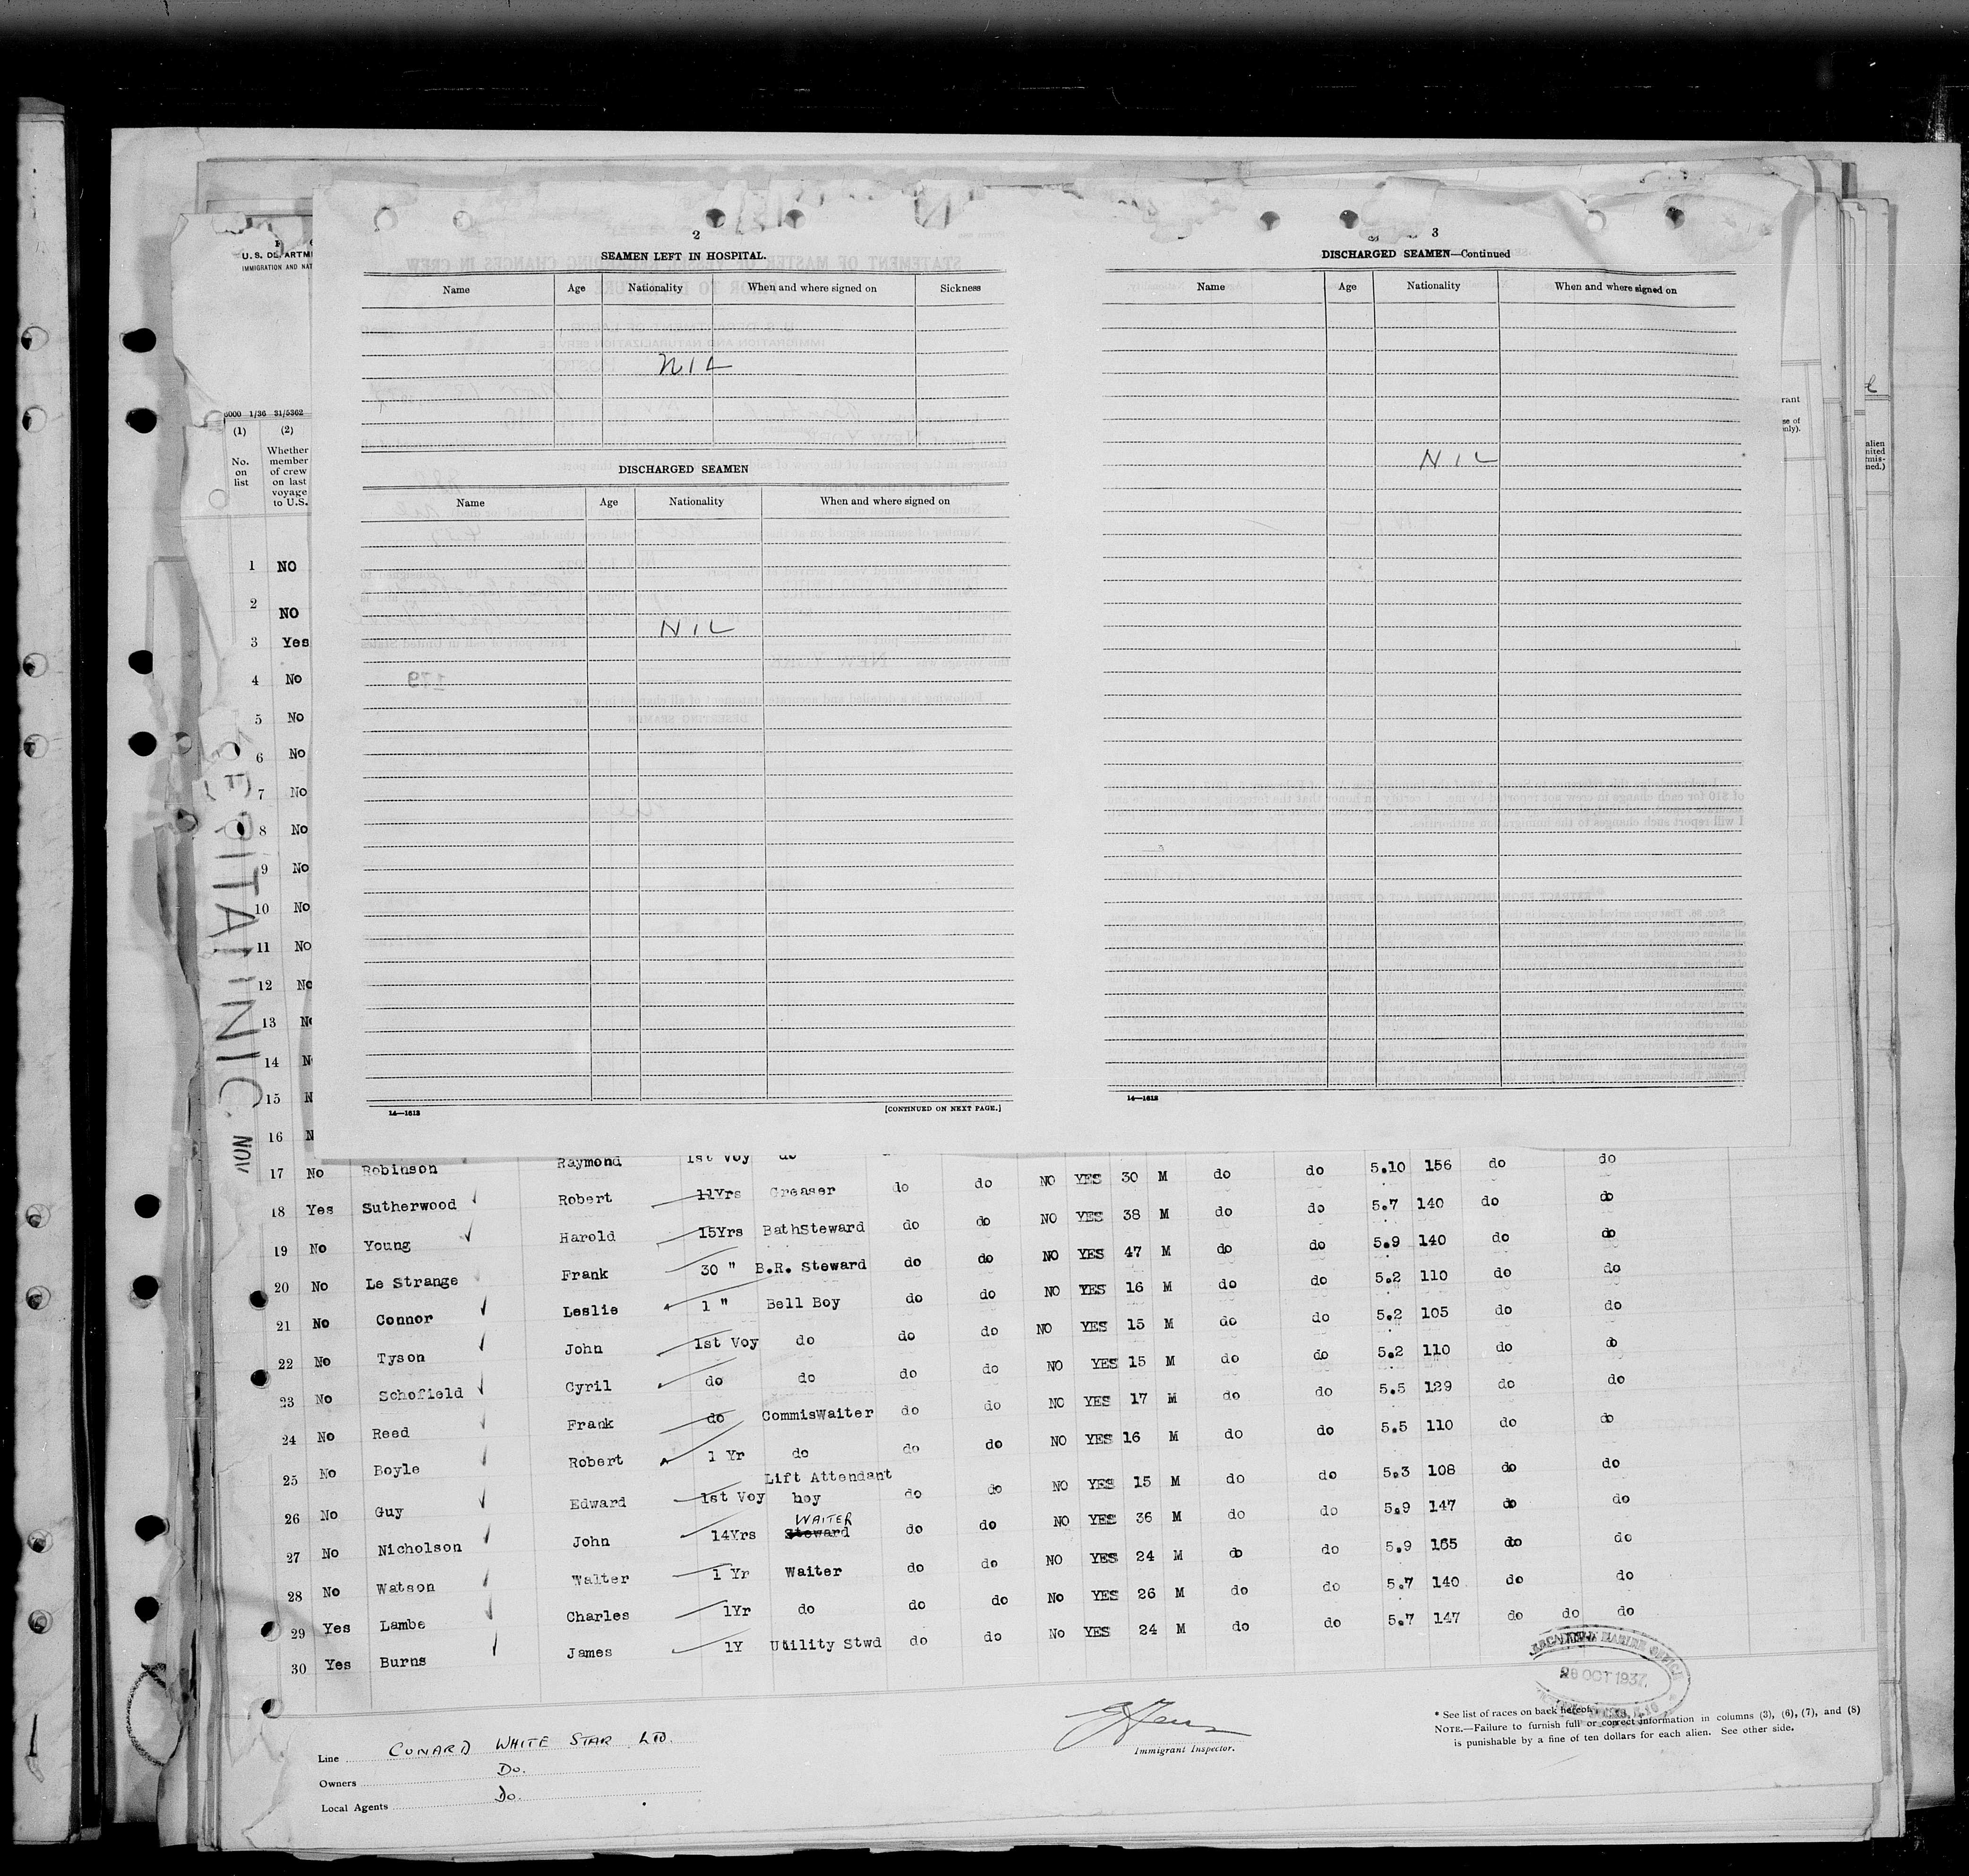 2
SEAMEN LEFT IN HOSPITAL.
Name Age Nationality When and where signed on Sickness
NIL
DISCHARGED SEAMEN
Name Age Nationality When and where signed on
NIL
14—1613
[CONTINUED ON NEXT PAGE.]
3
DISCHARGED SEAMEN—Continued
Name Age Nationality When and where signed on
NIL
14—1613
IMMIGRATION AND NAT
5000 1/36 31/5362
(1) (2)
No. on list
Whether member of crew on last voyage to U.S.
1 NO
2 NO
3 Yes
4 No
5 No
6 No
7 No
8 No
9 No
10 No
11 No
12 No
13 N
14 N
15 N
16 N
17 No Robinson Raymond 1st Voy do
18 Yes Sutherwood Robert 11Yrs Greaser do do NO YES 30 M do do 5.10 156 do do
19 No Young Harold 15Yrs BathSteward do do NO YES 38 M do do 5.7 140 do do
20 No Le Strange Frank 30 " B.R. Steward do do NO YES 47 M do do 5.9 140 do do
21 No Connor Leslie 1 " Bell Boy do do NO YES 16 M do do 5.2 110 do do
22 No Tyson John 1st Voy do do do NO YES 15 M do do 5.2 105 do do
23 No Schofield Cyril do do do do NO YES 15 M do do 5.2 110 do do
24 No Reed Frank do CommisWaiter do do NO YES 17 M do do 5.5 129 do do
25 No Boyle Robert 1 Yr do do do NO YES 16 M do do 5.5 110 do do
26 No Guy Edward 1st Voy Lift Attendant boy do do NO YES 15 M do do 5.3 108 do do
27 No Nicholson John 14Yrs Steward WAITER do do NO YES 36 M do do 5.9 147 do do
28 No Watson Walter 1 Yr Waiter do do NO YES 24 M do do 5.9 165 do do
29 Yes Lambe Charles 1Yr do do do No YES 26 M do do 5.7 140 do do
30 Yes Burns James 1Y Utility Stwd do do No YES 24 M do do 5.7 147 do do do
28 OCT 1937
Line CUNARD WHITE STAR LTD.
Owners Do.
Local Agents Do.
Immigrant Inspector.
* See list of races on back hereof.
NOTE.—Failure to furnish full or correct information in columns (3), (6), (7), and (8)
is punishable by a fine of ten dollars for each alien. See other side.
NOV